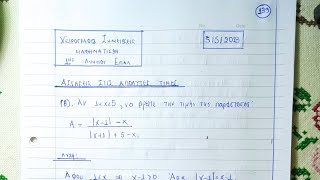 ΧΕΙΡΟΓΡΑΦΕΣ ΣΗΜΕΙΩΣΕΙΣ
ΜΑΘΗΜΑΤΙΚΩΝ
ΛΥΚΕΙΟΥ ΕΠΑΛ
5/5/2025
ΑΣΚΗΣΕΙΣ ΣΤΙΣ ΑΠΟΛΥΤΕΣ ΤΙΜΕΣ
Αν 1<x<5, να βρείτε την τιμή της παράστασης
A = |x-1| - x / |x+1| + 5 - x
Λύση:
Αφού 1<x ⇒ x-1>0 Άρα |x-1|=x-1